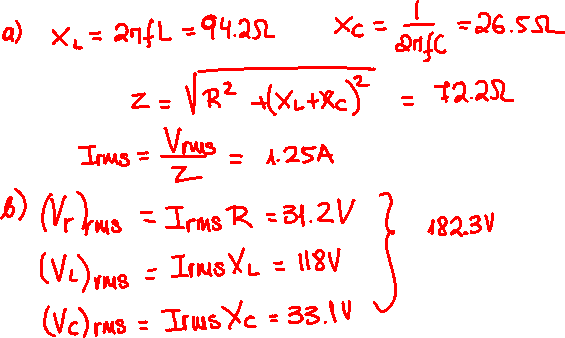 a) X_L = 2πfL = 94.2Ω X_C = 1/(2πfC) = 26.5Ω
Z = √(R² + (X_L + X_C)²) = 72.2Ω
I_rms = V_rms/Z = 1.25A
b) (V_r)_rms = I_rms R = 31.2V
(V_L)_rms = I_rms X_L = 118V
(V_C)_rms = I_rms X_C = 33.1V
} 182.3V